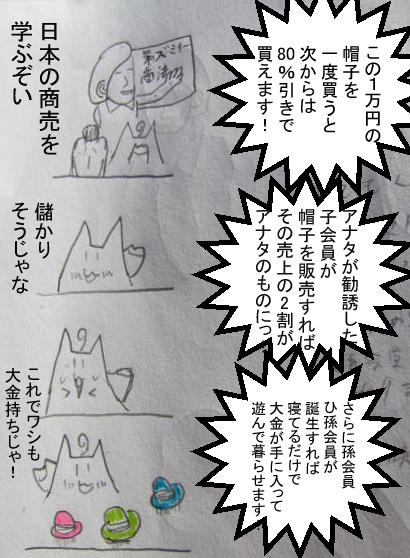 この1万円の
帽子を
一度買うと
次からは
80%引きで
買えます!
日本の商売を
学ぶぞい
アナタが勧誘した
子会員が
帽子を販売すれば
その売上の2割が
アナタのものにっ
儲かり
そうじゃな
さらに孫会員
ひ孫会員が
誕生すれば
寝てるだけで
大金が手に入って
遊んで暮らせます
これでワシも
大金持ちじゃ!